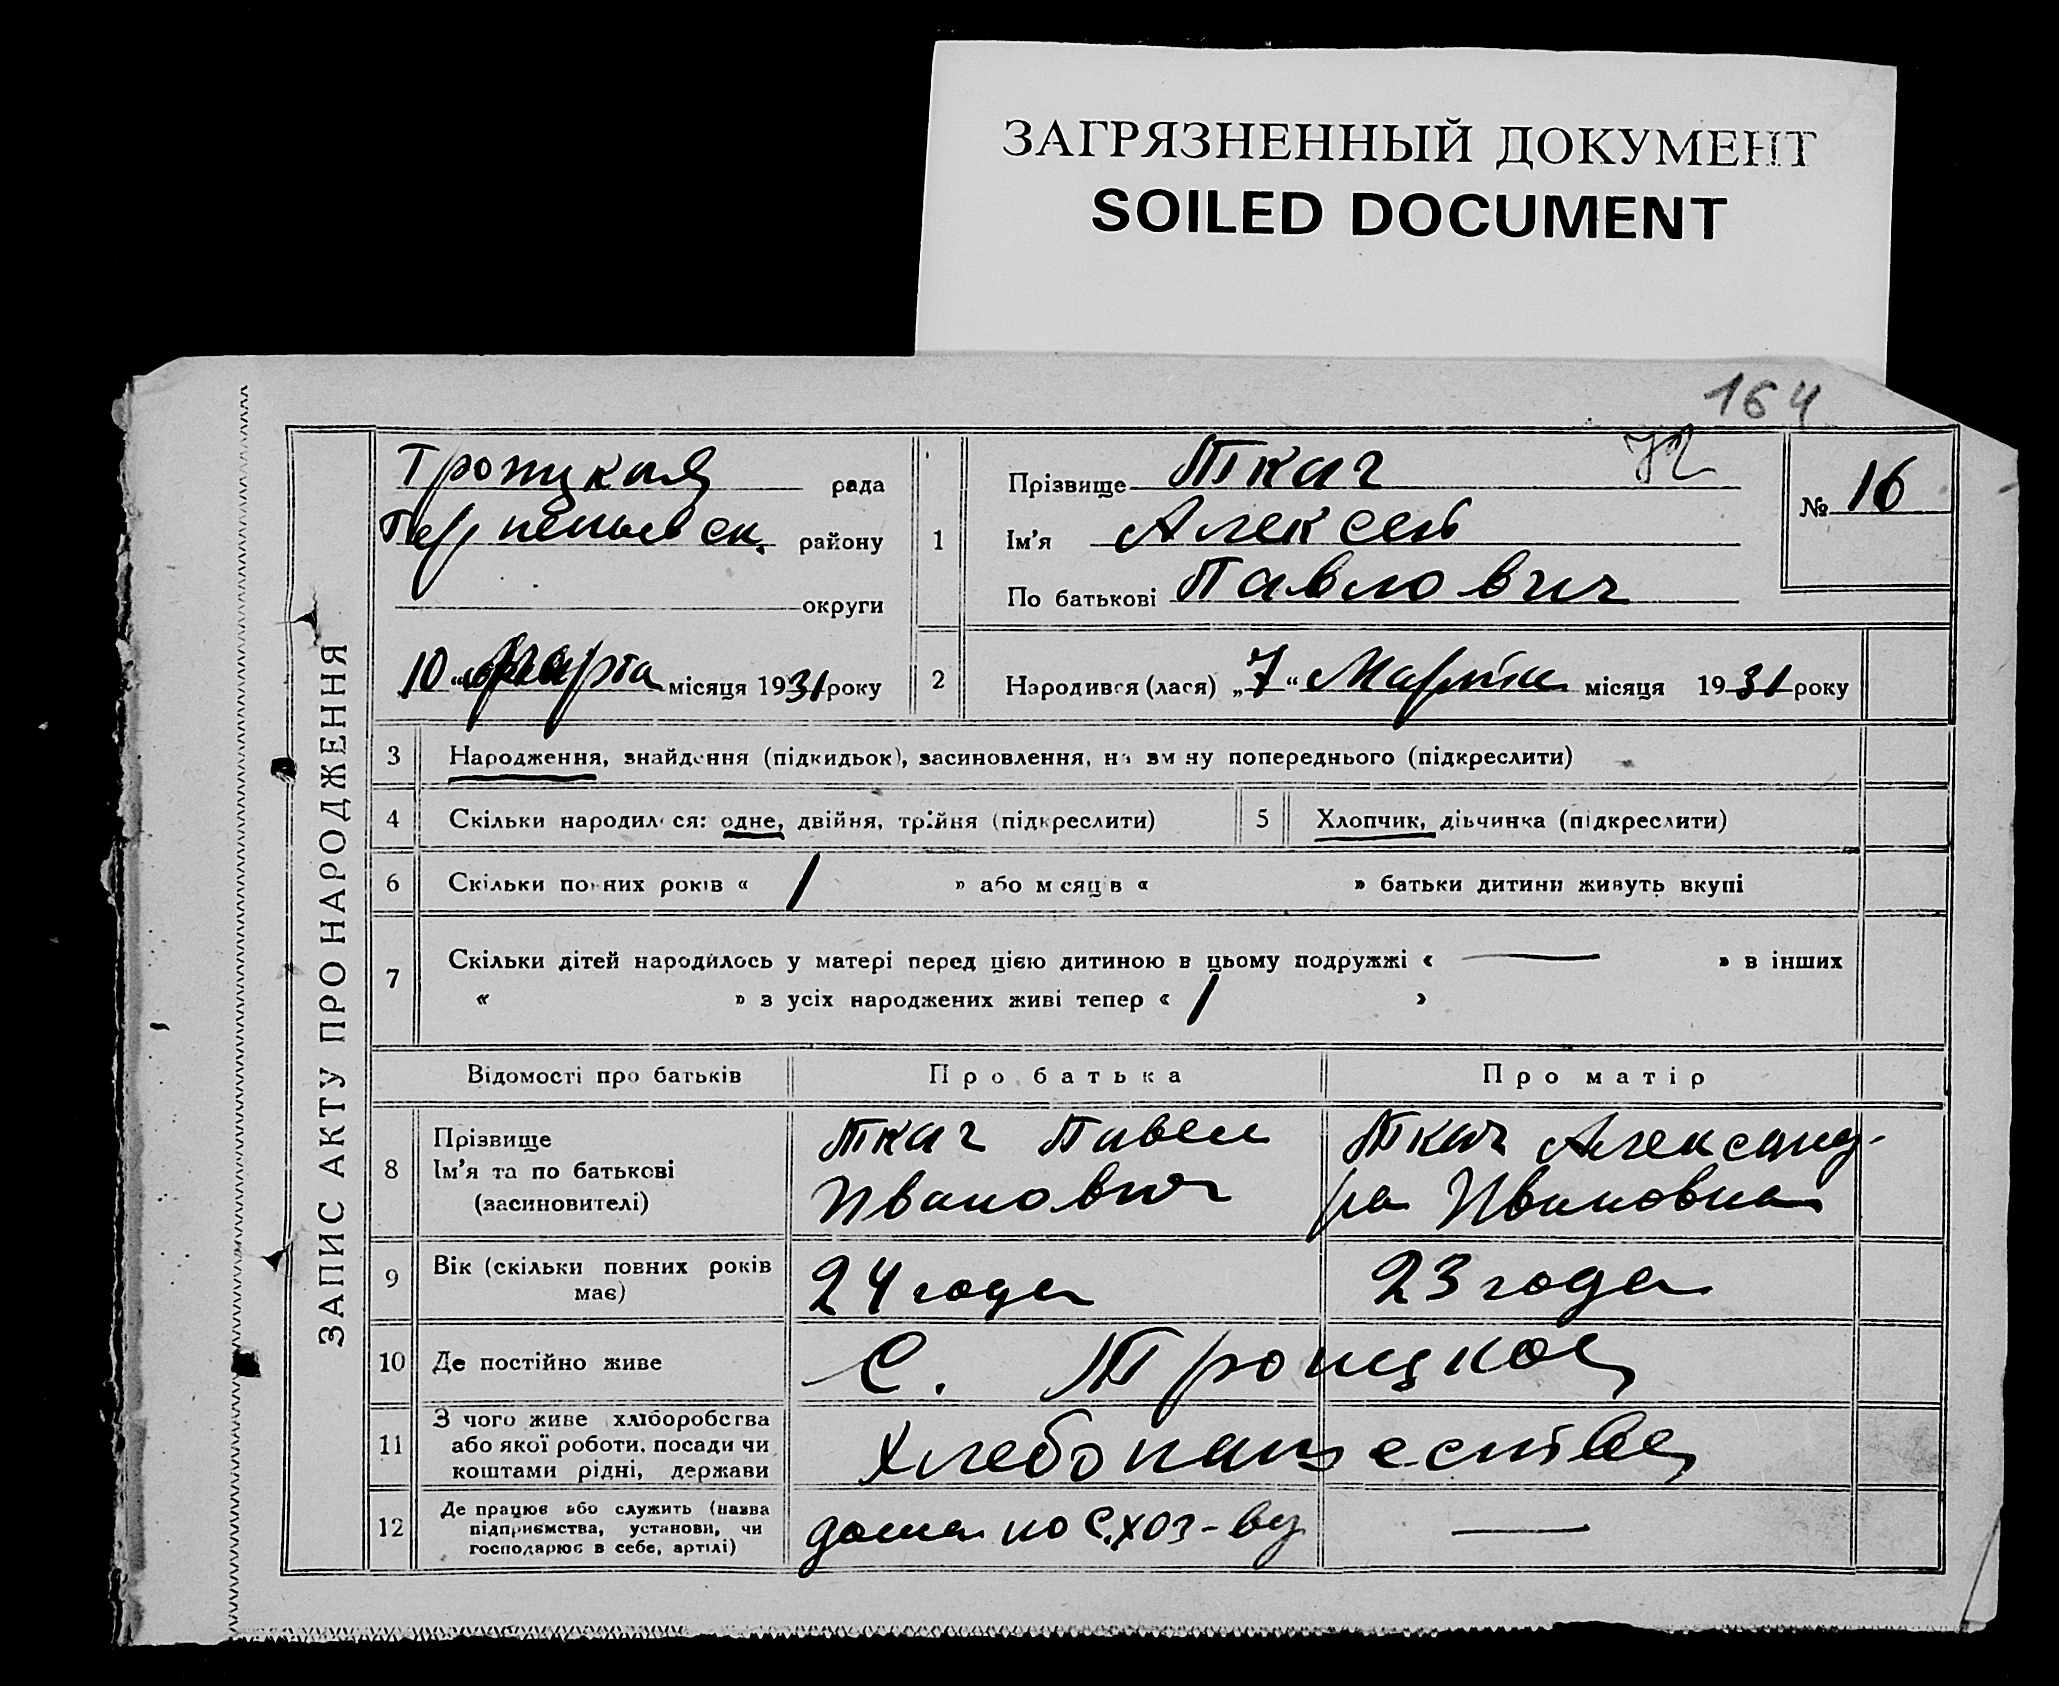 ЗАГРЯЗНЕННЫЙ ДОКУМЕНТ
SOILED DOCUMENT
164
ЗАПИС АКТУ ПРО НАРОДЖЕННЯ
Троицкая рада
Терпеньевск. району
округи
10 марта місяця 1931 року
1
Прізвище Ткач
72
Ім'я Алексей
По батькові Павлович
№ 16
2 Народився (лася) „7“ Марта місяця 1931 року
3 Народження, знайдення (підкидьок), засиновлення, на зміну попереднього (підкреслити)
4 Скільки народилося: одне, двійня, трійня (підкреслити)
5 Хлопчик, дівчинка (підкреслити)
6 Скільки повних років « 1 » або місяців « » батьки дитини живуть вкупі
7 Скільки дітей народилось у матері перед цією дитиною в цьому подружжі « — » в інших
« » з усіх народжених живі тепер « 1 »
Відомості про батьків Про батька Про матір
8
Прізвище
Ім'я та по батькові
(засиновителі)
Ткач Павел
Иванович
Ткач Александ-
ра Ивановна
9
Вік (скільки повних років
має)
24 года
23 года
10 Де постійно живе
С. Троицкое
11
З чого живе хліборобства
або якої роботи, посади чи
коштами рідні, держави
Хлебопашество
12
Де працює або служить (назва
підприємства, установи, чи
господарює в себе, артілі)
дома по С.хоз-ву
—